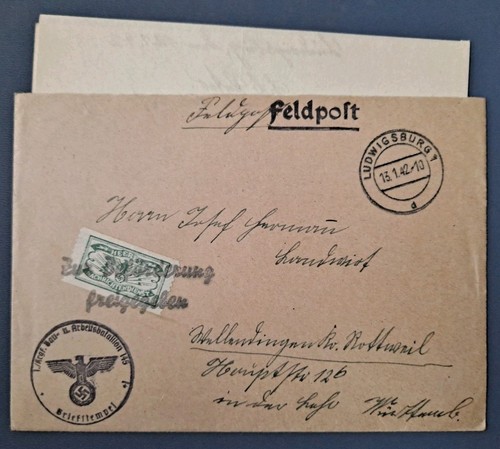 Feldpost
Feldpost
LUDWIGSBURG 1
13.1.42.-10
d
Herrn Josef Hermann
Landwirt
Zur Beförderung
freigegeben
Wellendingen Kr. Rottweil
Hauptstr 126
in der
Württemb.
Bau- u. Arbeitsbataillon
Briefstempel